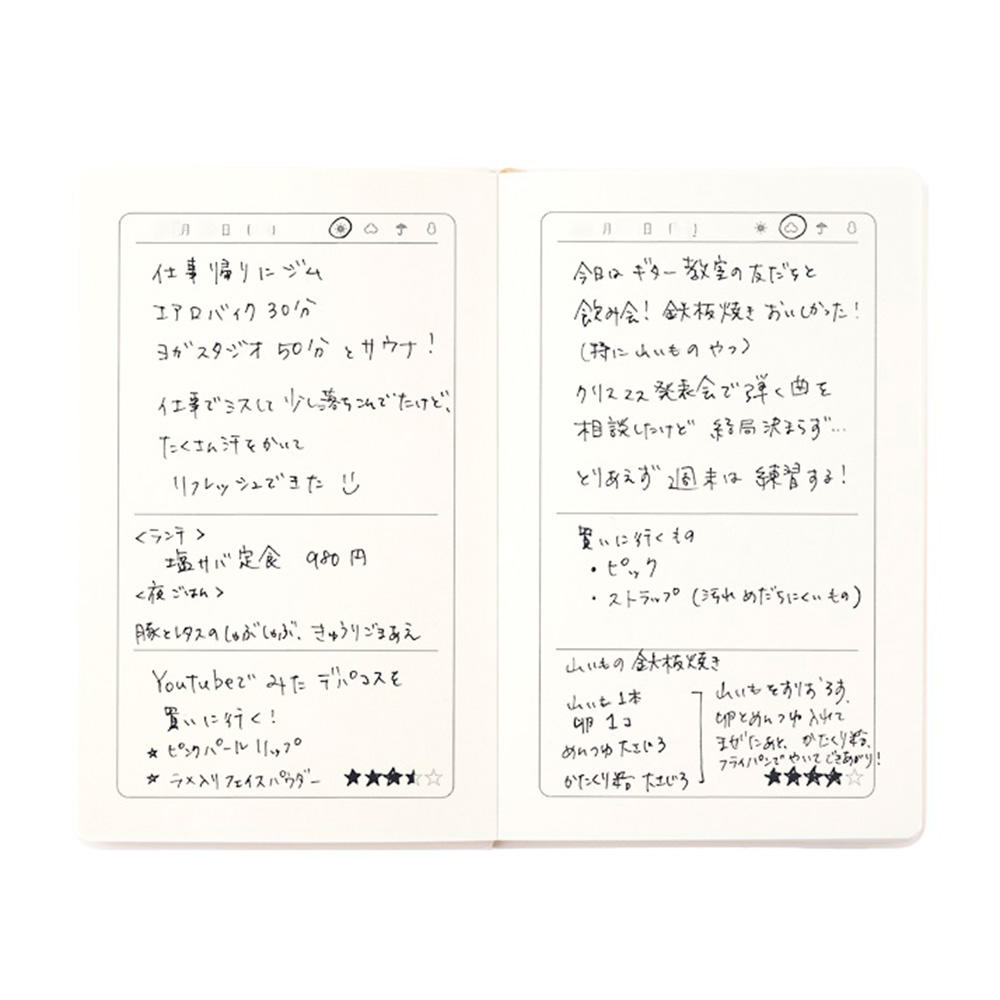 月 日 ( )
仕事帰りにジム
エアロバイク 30分
ヨガスタジオ 50分 とサウナ!
仕事でミスして 少し落ちこんでたけど、
たくさん汗をかいて
リフレッシュできた
<ランチ>
塩サバ定食 980円
<夜ごはん>
豚とレタスのしゃぶしゃぶ、きゅうりごまあえ
Youtubeで みた デパコスを
買いに行く!
★ ピンクパール リップ
★ ラメ入りフェイスパウダー
★★★★☆
月 日 ( )
今日は ギター 教室の友だちと
飲み会! 鉄板焼き おいしかった!
(特に山いものやつ)
クリスマス発表会で弾く曲を
相談したけど 結局決まらず…
とりあえず 週末は 練習する!
買いに行くもの
・ピック
・ストラップ (汚れめだちにくいもの)
山いもの 鉄板焼き
山いも 1本
卵 1コ
めんつゆ 大さじ3
かたくり粉 大さじ3
山いもをすりおろす、
卵とめんつゆ入れて
まぜたあと、かたくり粉、
フライパンでやいてできあがり!
★★★★☆